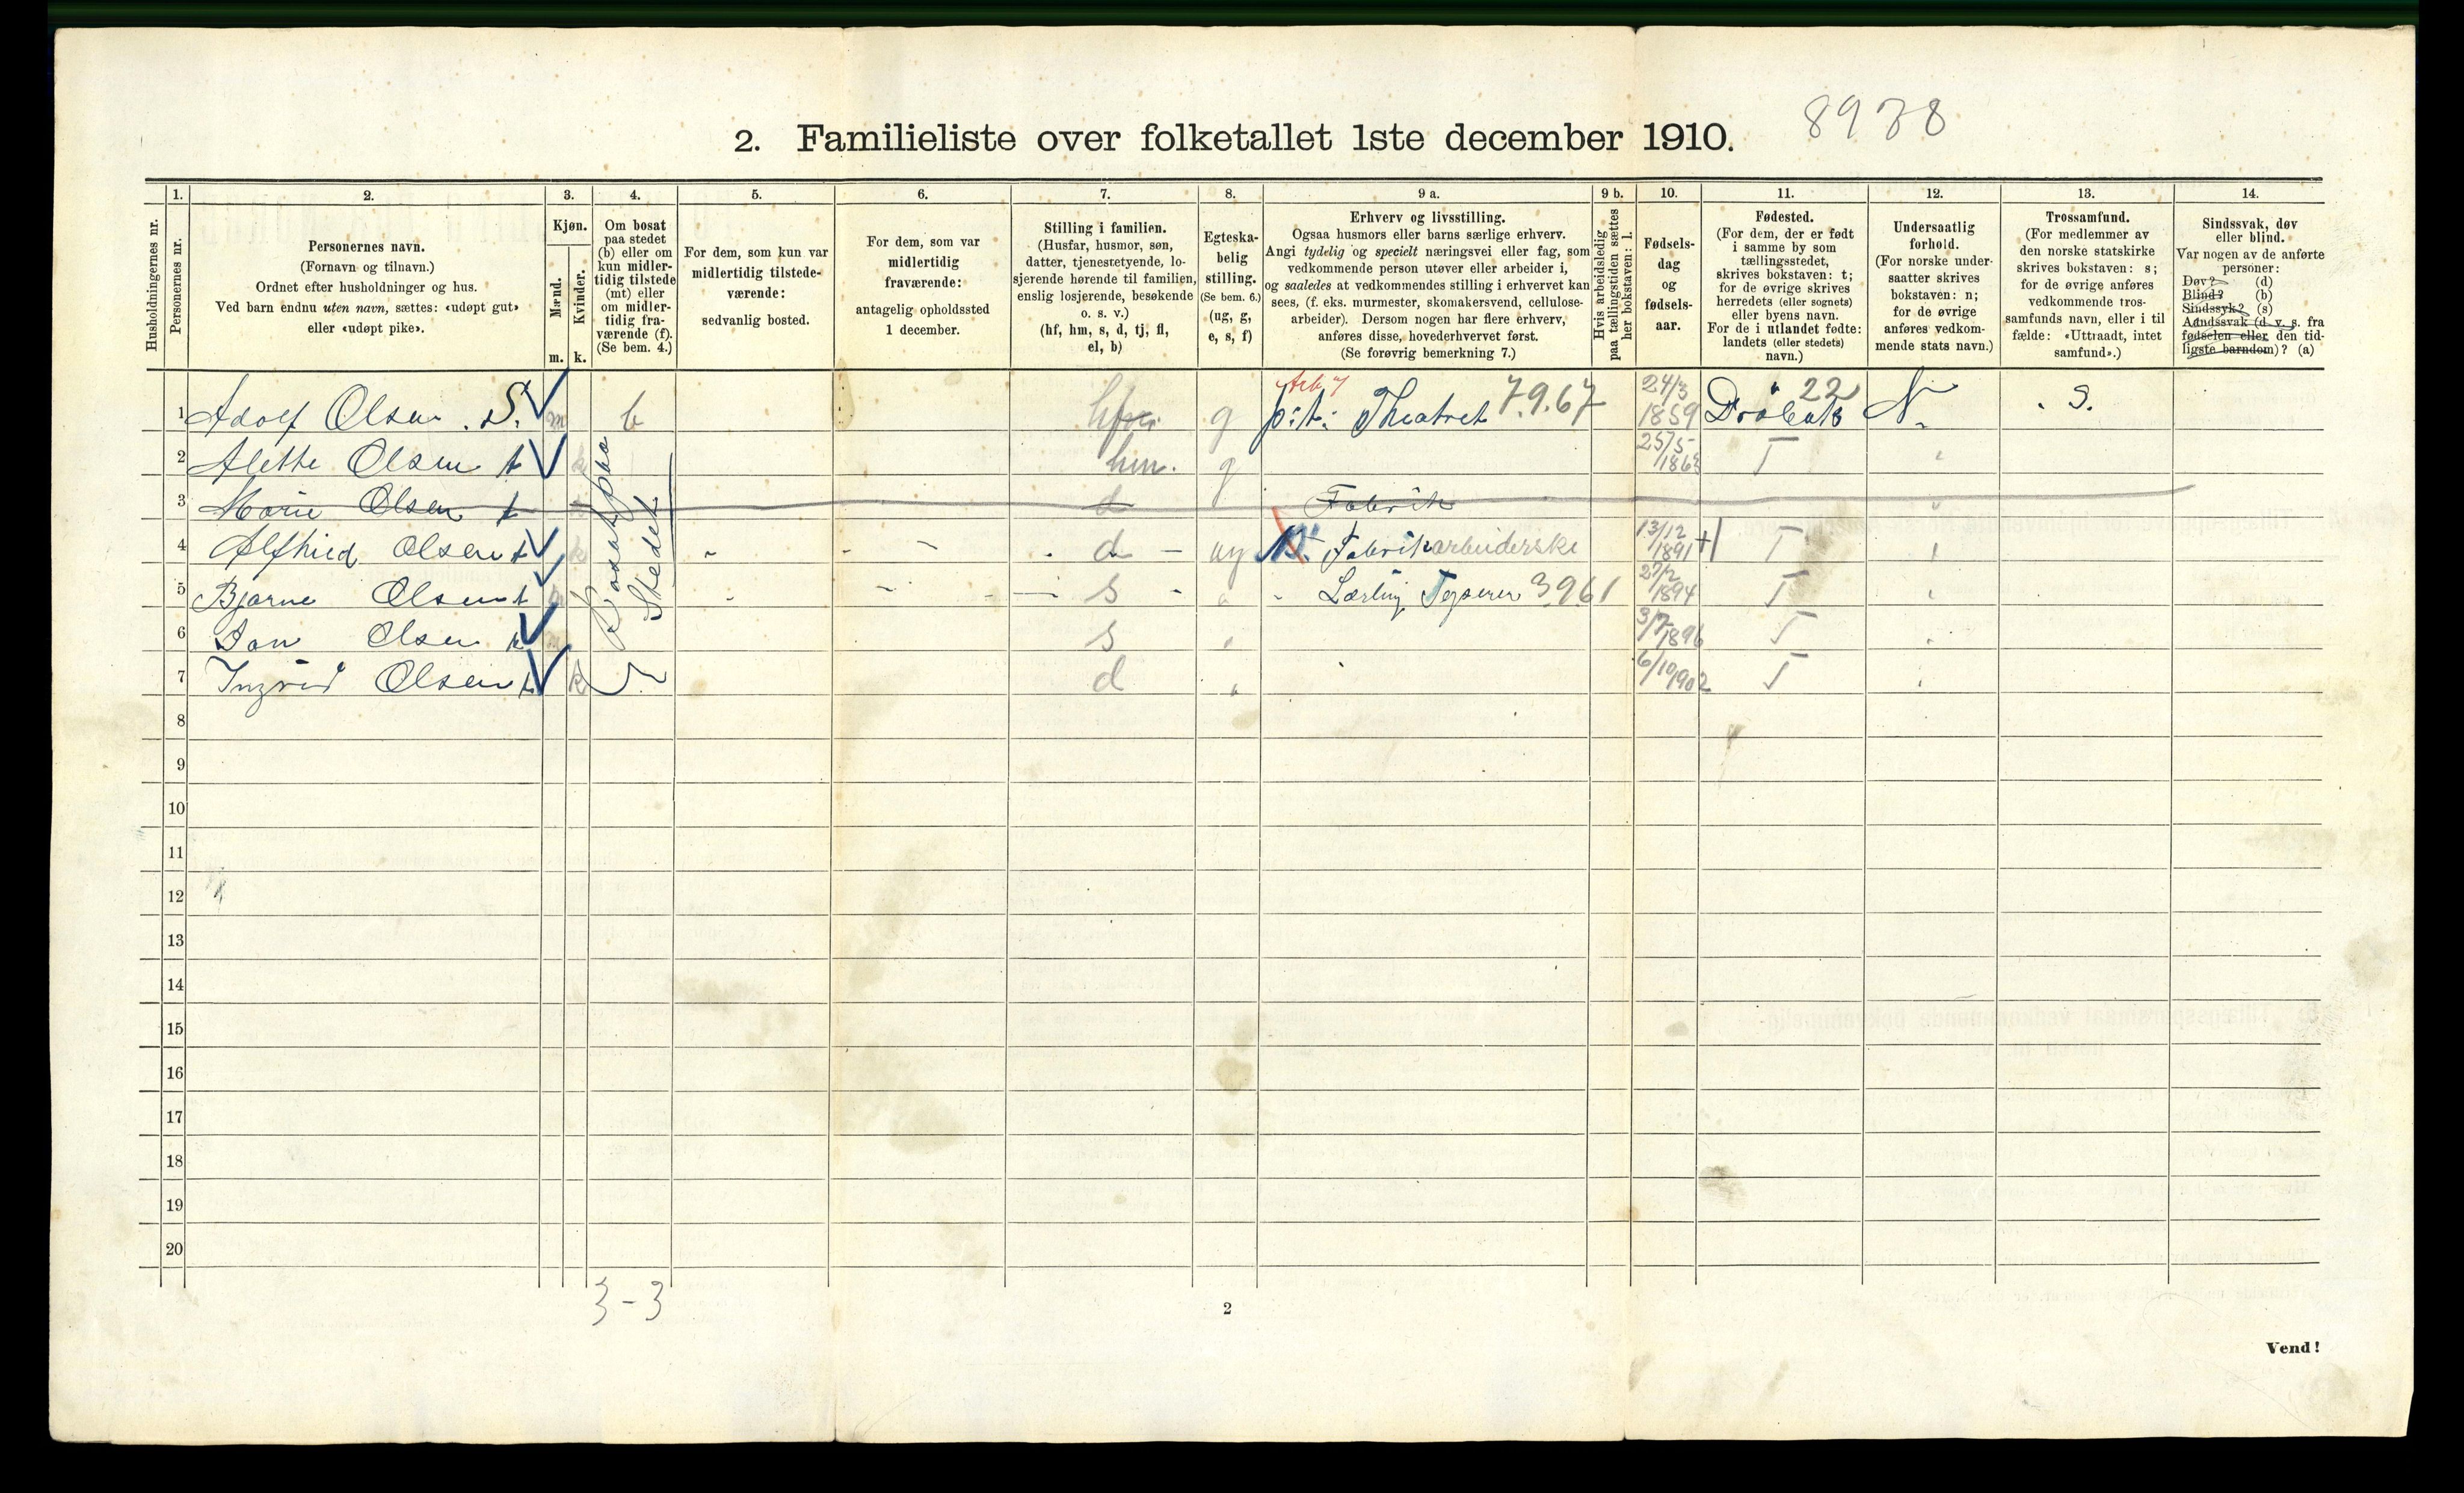 8938
2. Familieliste over folketallet 1ste december 1910.
Husholdningernes nr.
1. Personernes nr.
2. Personernes navn. (Fornavn og tilnavn.) Ordnet efter husholdninger og hus. Ved barn endnu uten navn, sættes: «udøpt gut» eller «udøpt pike».
3. Kjøn. Mænd. m. Kvinder. k.
4. Om bosat paa stedet (b) eller om kun midlertidig tilstede (mt) eller om midlertidig fraværende (f). (Se bem. 4.)
5. For dem, som kun var midlertidig tilstedeværende: sedvanlig bosted.
6. For dem, som var midlertidig fraværende: antagelig opholdssted 1 december.
7. Stilling i familien. (Husfar, husmor, søn, datter, tjenestetyende, losjerende hørende til familien, enslig losjerende, besøkende o. s. v.) (hf, hm, s, d, tj, fl, el, b)
8. Egteskabelig stilling. (Se bem. 6.) (ug, g, e, s, f)
9 a. Erhverv og livsstilling. Ogsaa husmors eller barns særlige erhverv. Angi tydelig og specielt næringsvei eller fag, som vedkommende person utøver eller arbeider i, og saaledes at vedkommendes stilling i erhvervet kan sees, (f. eks. murmester, skomakersvend, cellulosearbeider). Dersom nogen har flere erhverv, anføres disse, hovederhvervet først. (Se forøvrig bemerkning 7.)
9 b. Hvis arbeidsledig paa tællingstiden sættes her bokstaven: l.
10. Fødselsdag og fødselsaar.
11. Fødested. (For dem, der er født i samme by som tællingsstedet, skrives bokstaven: t; for de øvrige skrives herredets (eller sognets) eller byens navn. For de i utlandet fødte: landets (eller stedets) navn.)
12. Undersaatlig forhold. (For norske undersaatter skrives bokstaven: n; for de øvrige anføres vedkommende stats navn.)
13. Trossamfund. (For medlemmer av den norske statskirke skrives bokstaven: s; for de øvrige anføres vedkommende trossamfunds navn, eller i tilfælde: «Uttraadt, intet samfund».)
14. Sindssvak, døv eller blind. Var nogen av de anførte personer: Døv? (d) Blind? (b) Sindssyk? (s) Aandssvak (d. v. s. fra fødselen eller den tidligste barndom)? (a)
1 Adolf Olsen . S. m b hf g p:t: Theatret 7.9.67 24/3 1859 Drøbak 22 N. . S.
2 Alette Olsen t k hm. g 25/5 T
3 Marie Olsen t d Fabrik
4 Alfhild Olsen t k d ug Fabrikarbeiderske 13/12 1891 T
5 Bjarne Olsen t m s Lærling 3961 27/2 1894 T
6 Olsen t m s 3/7 1896 T
7 Ingrid Olsen t k d 6/10 1902 T
Bosat paa Stedet
8
9
10
11
12
13
14
15
16
17
18
19
20
3-3
2
Vend!